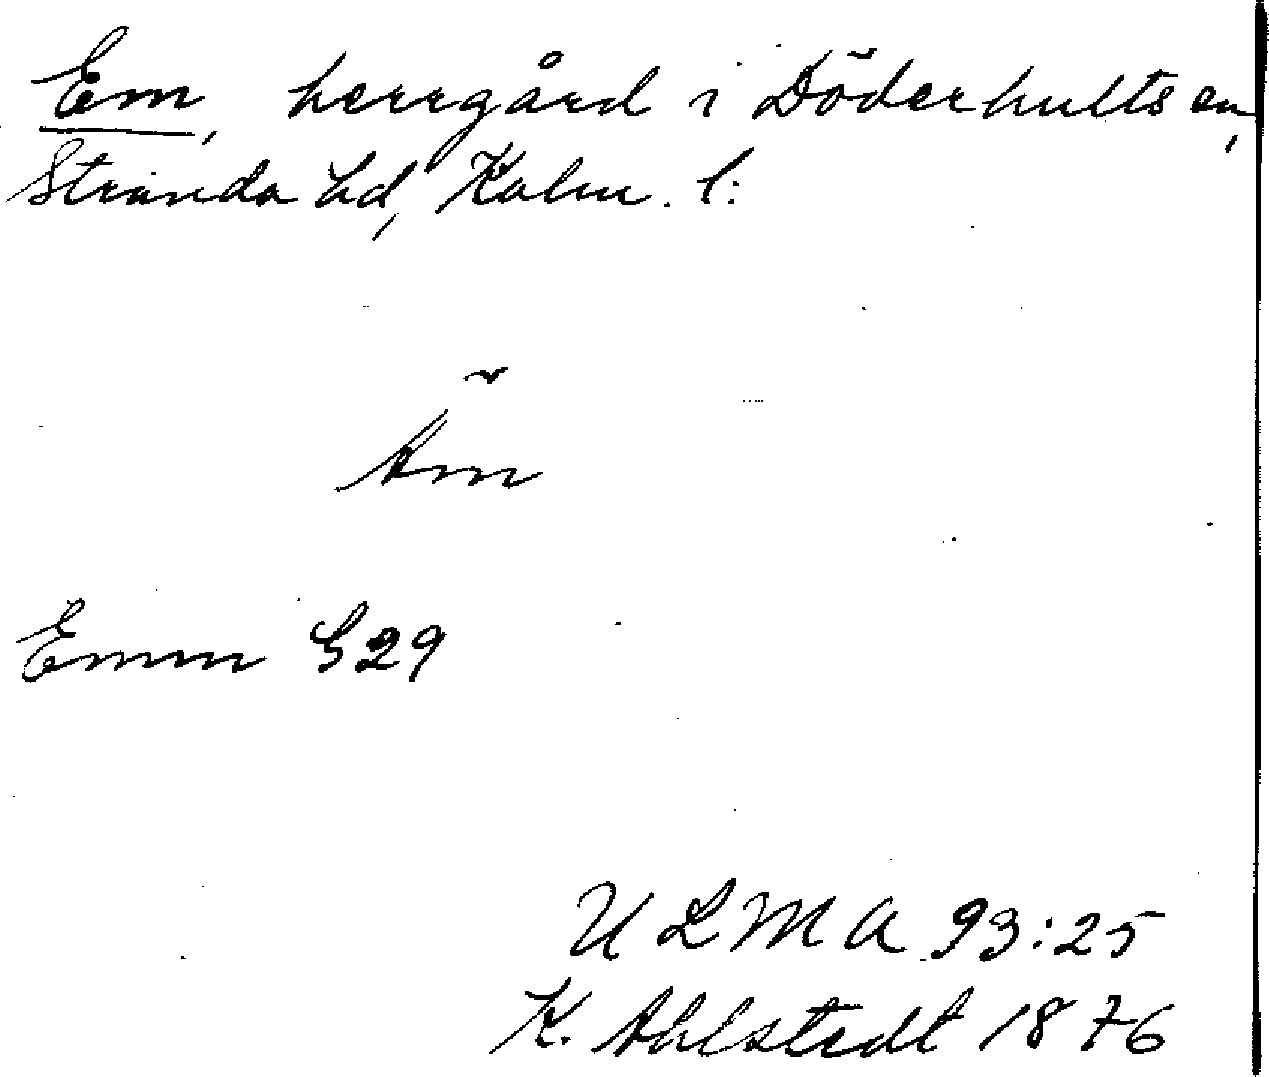 Em, herrgård i Döderhults sn,
Stranda hd, Kalm. l:
Äm
Emm S29
ULMA 93:25
K. Ahlstedt 1876